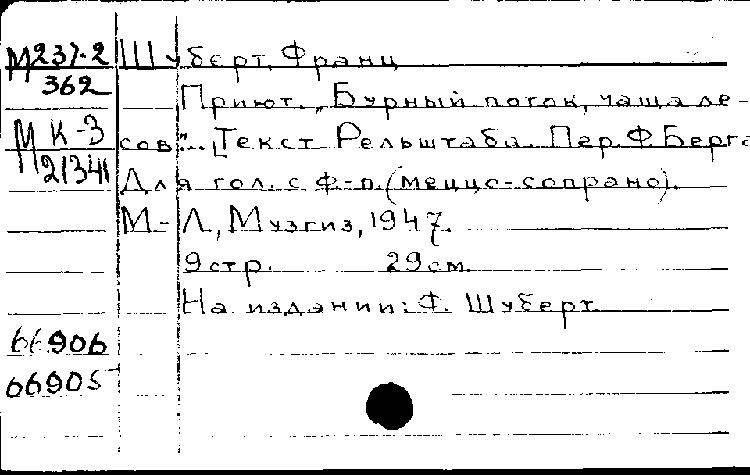 М237-2 Шуберт, Франц
362
Приют. „Бурный поток, чаща ле-
М К-3 сов"... [Текст Рельштаба. Пер. Ф. Берга
21341 Для гол. с ф-п. (меццо-сопрано).
М.-Л, Музгиз, 1947.
9 стр. 29 см.
На издании: Ф. Шуберт.
66906
66905